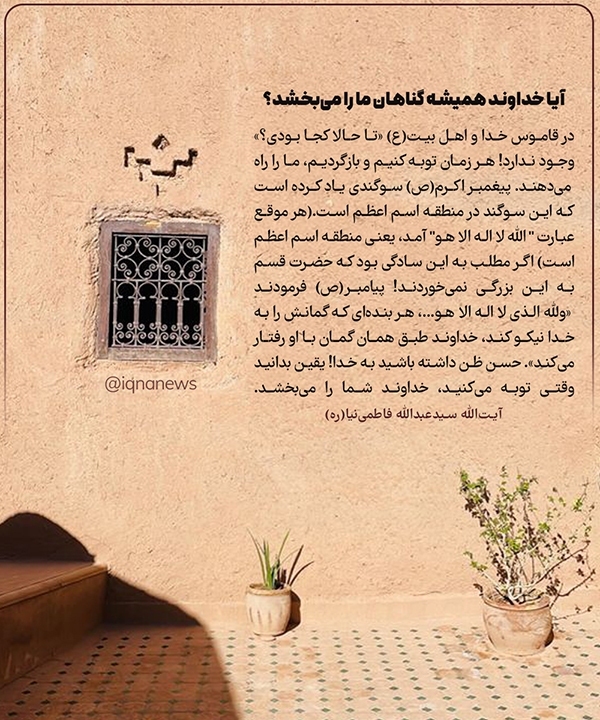 آیا خداوند همیشه گناهان ما را می‌بخشد؟
در قاموس خدا و اهل بیت(ع) «تا حالا کجا بودی؟»
وجود ندارد! هر زمان توبه کنیم و بازگردیم، ما را راه
می‌دهند. پیغمبر اکرم(ص) سوگندی یاد کرده است
که این سوگند در منطقه اسم اعظم است.(هر موقع
عبارت " الله لا اله الا هو" آمد، یعنی منطقه اسم اعظم
است) اگر مطلب به این سادگی بود که حضرت قسم
به این بزرگی نمی‌خوردند! پیامبر(ص) فرمودند
«ولله الذی لا اله الا هو...، هر بنده‌ای که گمانش را به
خدا نیکو کند، خداوند طبق همان گمان با او رفتار
می‌کند». حسن ظن داشته باشید به خدا! یقین بدانید
وقتی توبه می‌کنید، خداوند شما را می‌بخشد.
آیت‌الله سیدعبدالله فاطمی‌نیا(ره)
@iqnanews